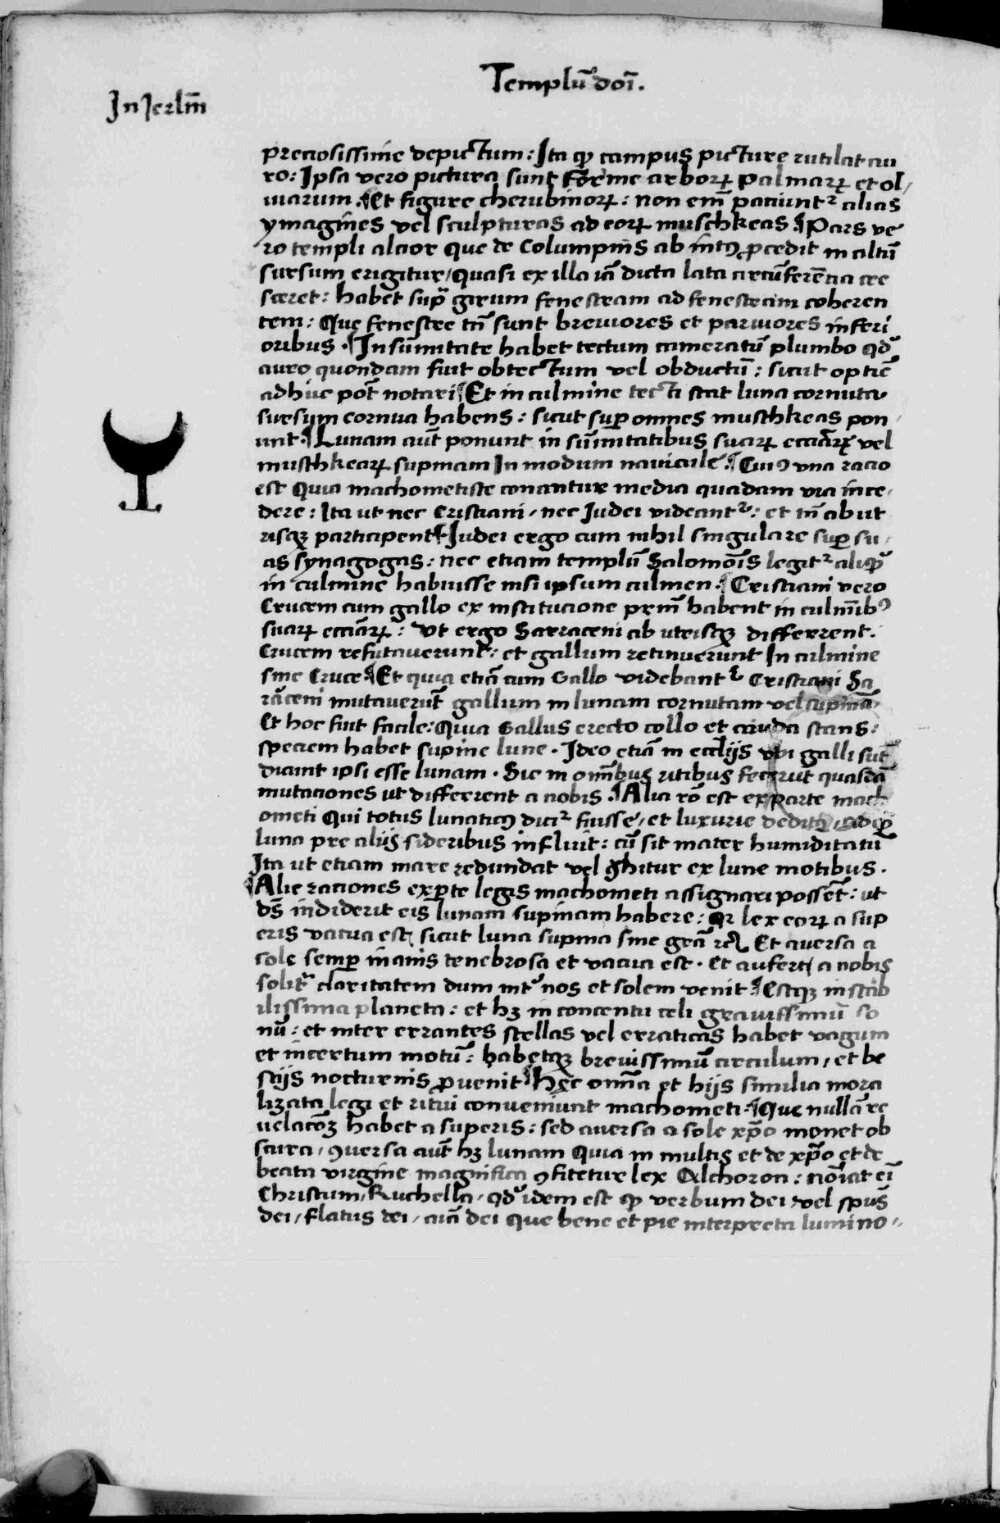 Templū doī.
In Jerlm̄
preciosissime depictum: Ita qꝫ campus picture rutilat au
ro: Ipsa vero pictura sunt forme arborꝝ palmarꝝ et ol/
iuarum. ¶Et figure cherubinorꝝ: non em̄ paciunt᷑ alias
ymagines vel sculpturas ad eorꝝ muschkeas ¶Pars ve
ro templi alcior que de Columpnis ab intꝰ ꝓcedit in altū
sursum erigitur/quasi ex illa iā dicta lata circūferēcia cre
sceret: habet sup̄ girum fenestram ad fenestram coheren
tem: Que fenestre tn̄ sunt breuiores et paruiores inferi
oribus. ¶In sūmitate habet tectum cameratū plumbo qd᷑
auro quondam fuit obtectum vel obductū: sicut optīe
adhuc pot̄ notari ¶Et in culmine tecti stat luna cornuta
sursum cornua habens: sicut sup̄ omnes muschkeas pon
unt. ¶Lunam aūt ponunt in sūmitatibus suarꝝ ecciarꝝ vel
muschkearꝝ supinam In modum nauicule. ¶Cuiꝰ vna racio
est Quia machometiste conantur media quadam via ince/
dere: Ita ut nec Cristiani/nec Judei videant᷑: et tn̄ ab ut
risqꝫ participent ¶Judei ergo cum nihil singulare sup̄ su/
as synagogas: nec etiam templū Salomōis legit᷑ aliqd᷑
in culmine habuisse nisi ipsum culmen. ¶Cristiani vero
Crucem cum gallo ex institucione prim̄ habent in culmībꝰ
suarꝝ ecciarꝝ: Vt ergo Sarraceni ab utrisqꝫ differrent.
Crucem refutauerunt: et gallum retinuerunt In culmine
sine Cruce ¶Et quia etiā cum Gallo videbant᷑ Cristiani Sa
raceni mutauerūt gallum in lunam cornutam vel supinā.
Et hoc fuit facile: Quia Gallus erecto collo et cauda stans:
speciem habet supine lune. Ideo etiā in ecclijs vbi galli sūt
dicunt ipsi esse lunam. Sic in omībus ritibus fecerūt quasdā
mutaciones ut differrent a nobis. ¶Alia rō est ex parte mach
ometi Qui totus lunaticꝰ dicit᷑ fuisse/et luxurie deditꝰ/
luna pre alijs sideribus influit: cū sit mater humiditatū
Ita ut etiam mare redundat vel gͥhitur ex lune motibus.
¶Alie raciones ex ꝑte legis machometi assignari possent̄: ut
ds̄ indiderit eis lunam supinam habere: Qr lex eorꝝ a sup
eris vacua est, sicut luna supina sine grā Et auersa a
sole semp̄ inanis tenebrosa et vacua est. Et aufert a nobis
solit᷑ claritatem dum int᷑ nos et solem venit ¶Estqꝫ instab
ilissima planeta: et hꝫ in concentu celi grauissimū so
nū: et inter errantes stellas vel erraticas habet vagum
et incertum motū: habetqꝫ breuissimū circulum/et be
stijs nocturnis ꝓuenit ¶Hec omīa et hijs similia mora
lizata legi et ritui conueniunt machometi. ¶Que nullā re
uelacōꝫ habet a superis: sed auersa a sole xp̄o monet ob
scura/ꝯuersa aūt hꝫ lunam Quia in multis et de xp̄o et de
beata virgine magnifica ꝯfitetur lex Alchoron: nōiat eī
Christum/Ruchella/qd᷑ idem est qꝫ verbum dei vel spūs
dei/flatus dei/aīa dei que bene et pie interpreta lumino/